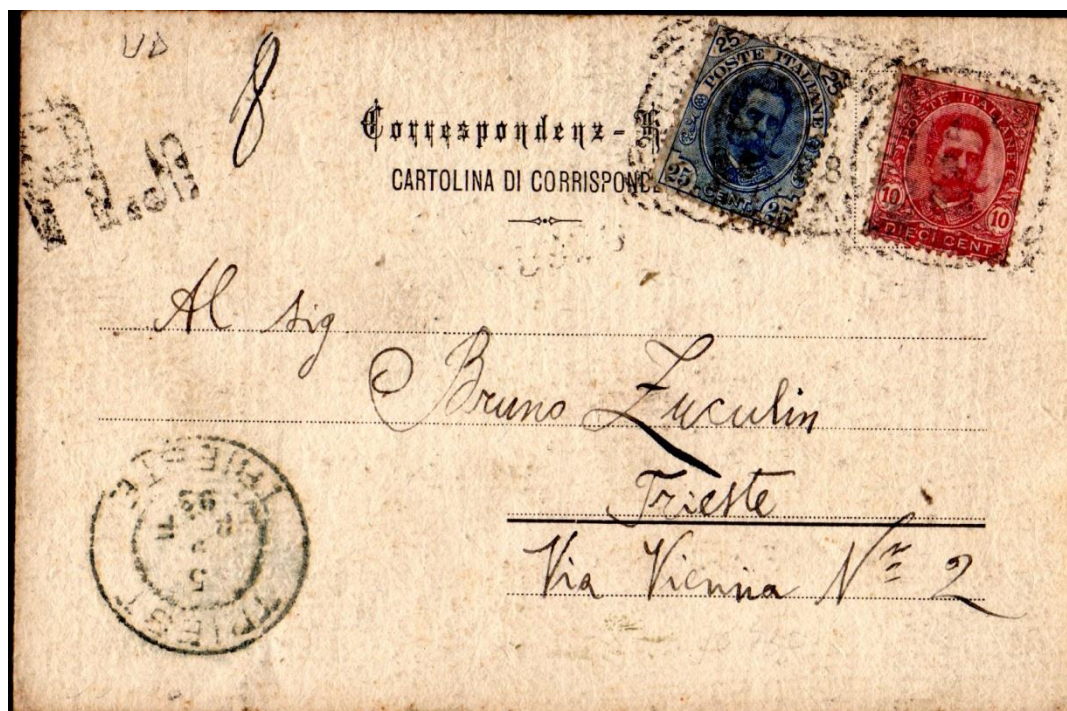 UD
8
R.
Correspondenz-
CARTOLINA DI CORRISPOND
25 POSTE ITALIANE 25
25 CENT. 25
POSTE ITALIANE
10 10
DIECI CENT.
Al sig
Bruno Zuculin
Trieste
Via Vienna Nr 2
TRIESTE
TRIEST
5